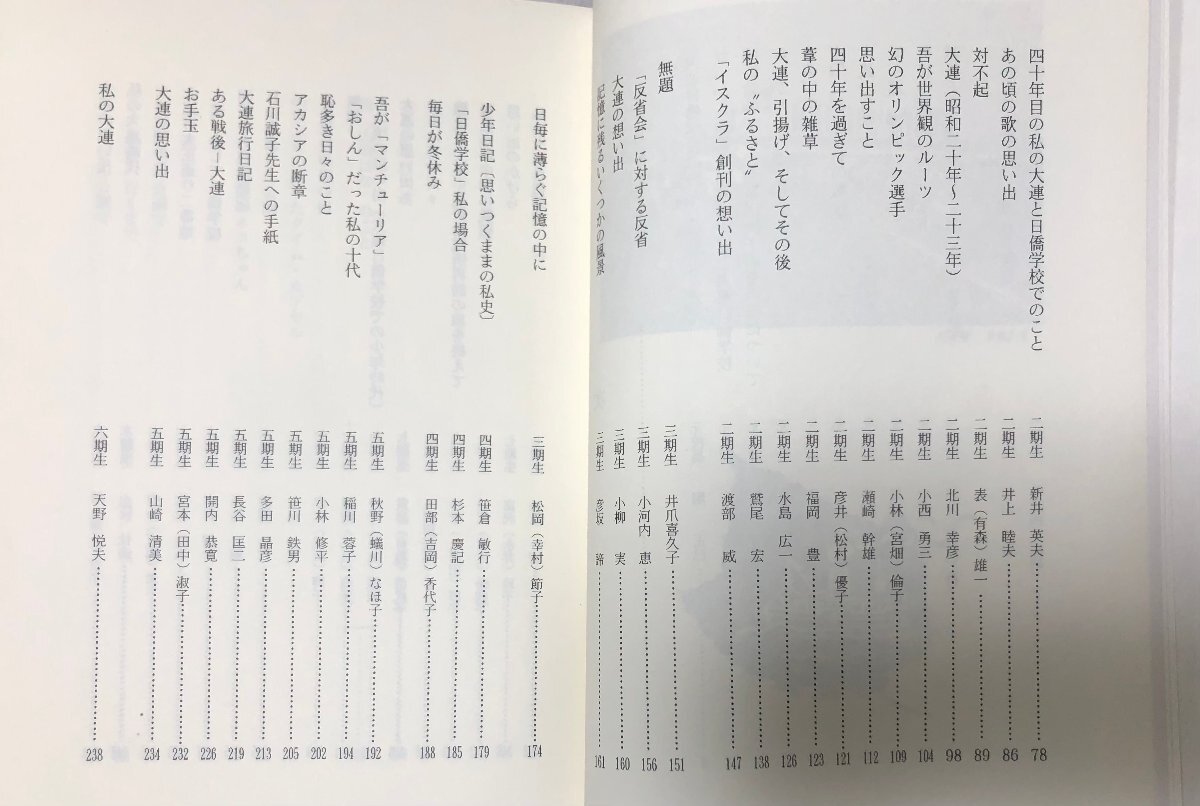 四十年目の私の大連と日僑学校でのこと 二期生 新井 英夫 78
あの頃の歌の思い出 二期生 井上 睦夫 86
対不起 二期生 表（有森）雄一 89
大連（昭和二十年～二十三年） 二期生 北川 幸彦 98
吾が世界観のルーツ 二期生 小西 勇三 104
幻のオリンピック選手 二期生 小林（宮畑）倫子 109
思い出すこと 二期生 瀬崎 幹雄 112
四十年を過ぎて 二期生 彦井（松村）優子 121
葦の中の雑草 二期生 福岡 豊 123
大連、引揚げ、そしてその後 二期生 水島 広一 126
私の〝ふるさと〟 二期生 鷲尾 宏 138
「イスクラ」創刊の想い出 二期生 渡部 威 147
無題 三期生 井爪喜久子 151
「反省会」に対する反省 三期生 小河内 恵 156
大連の想い出 三期生 小柳 実 160
記憶に残るいくつかの風景 三期生 彦坂 諦 161
日毎に薄らぐ記憶の中に 三期生 松岡（幸村）節子 174
少年日記〔思いつくままの私史〕 四期生 笹倉 敏行 179
「日僑学校」私の場合 四期生 杉本 慶記 185
毎日が冬休み 四期生 田部（吉岡）香代子 188
吾が「マンチューリア」 五期生 秋野（蟻川）なほ子 192
「おしん」だった私の十代 五期生 稲川 蓉子 194
恥多き日々のこと 五期生 小林 修平 202
アカシアの断章 五期生 笹川 鉄男 205
石川誠子先生への手紙 五期生 多田 晶彦 213
大連旅行日記 五期生 長谷 匡二 219
ある戦後ー大連 五期生 開内 恭寛 226
お手玉 五期生 宮本（田中）淑子 232
大連の思い出 五期生 山崎 清美 234
私の大連 六期生 天野 悦夫 238